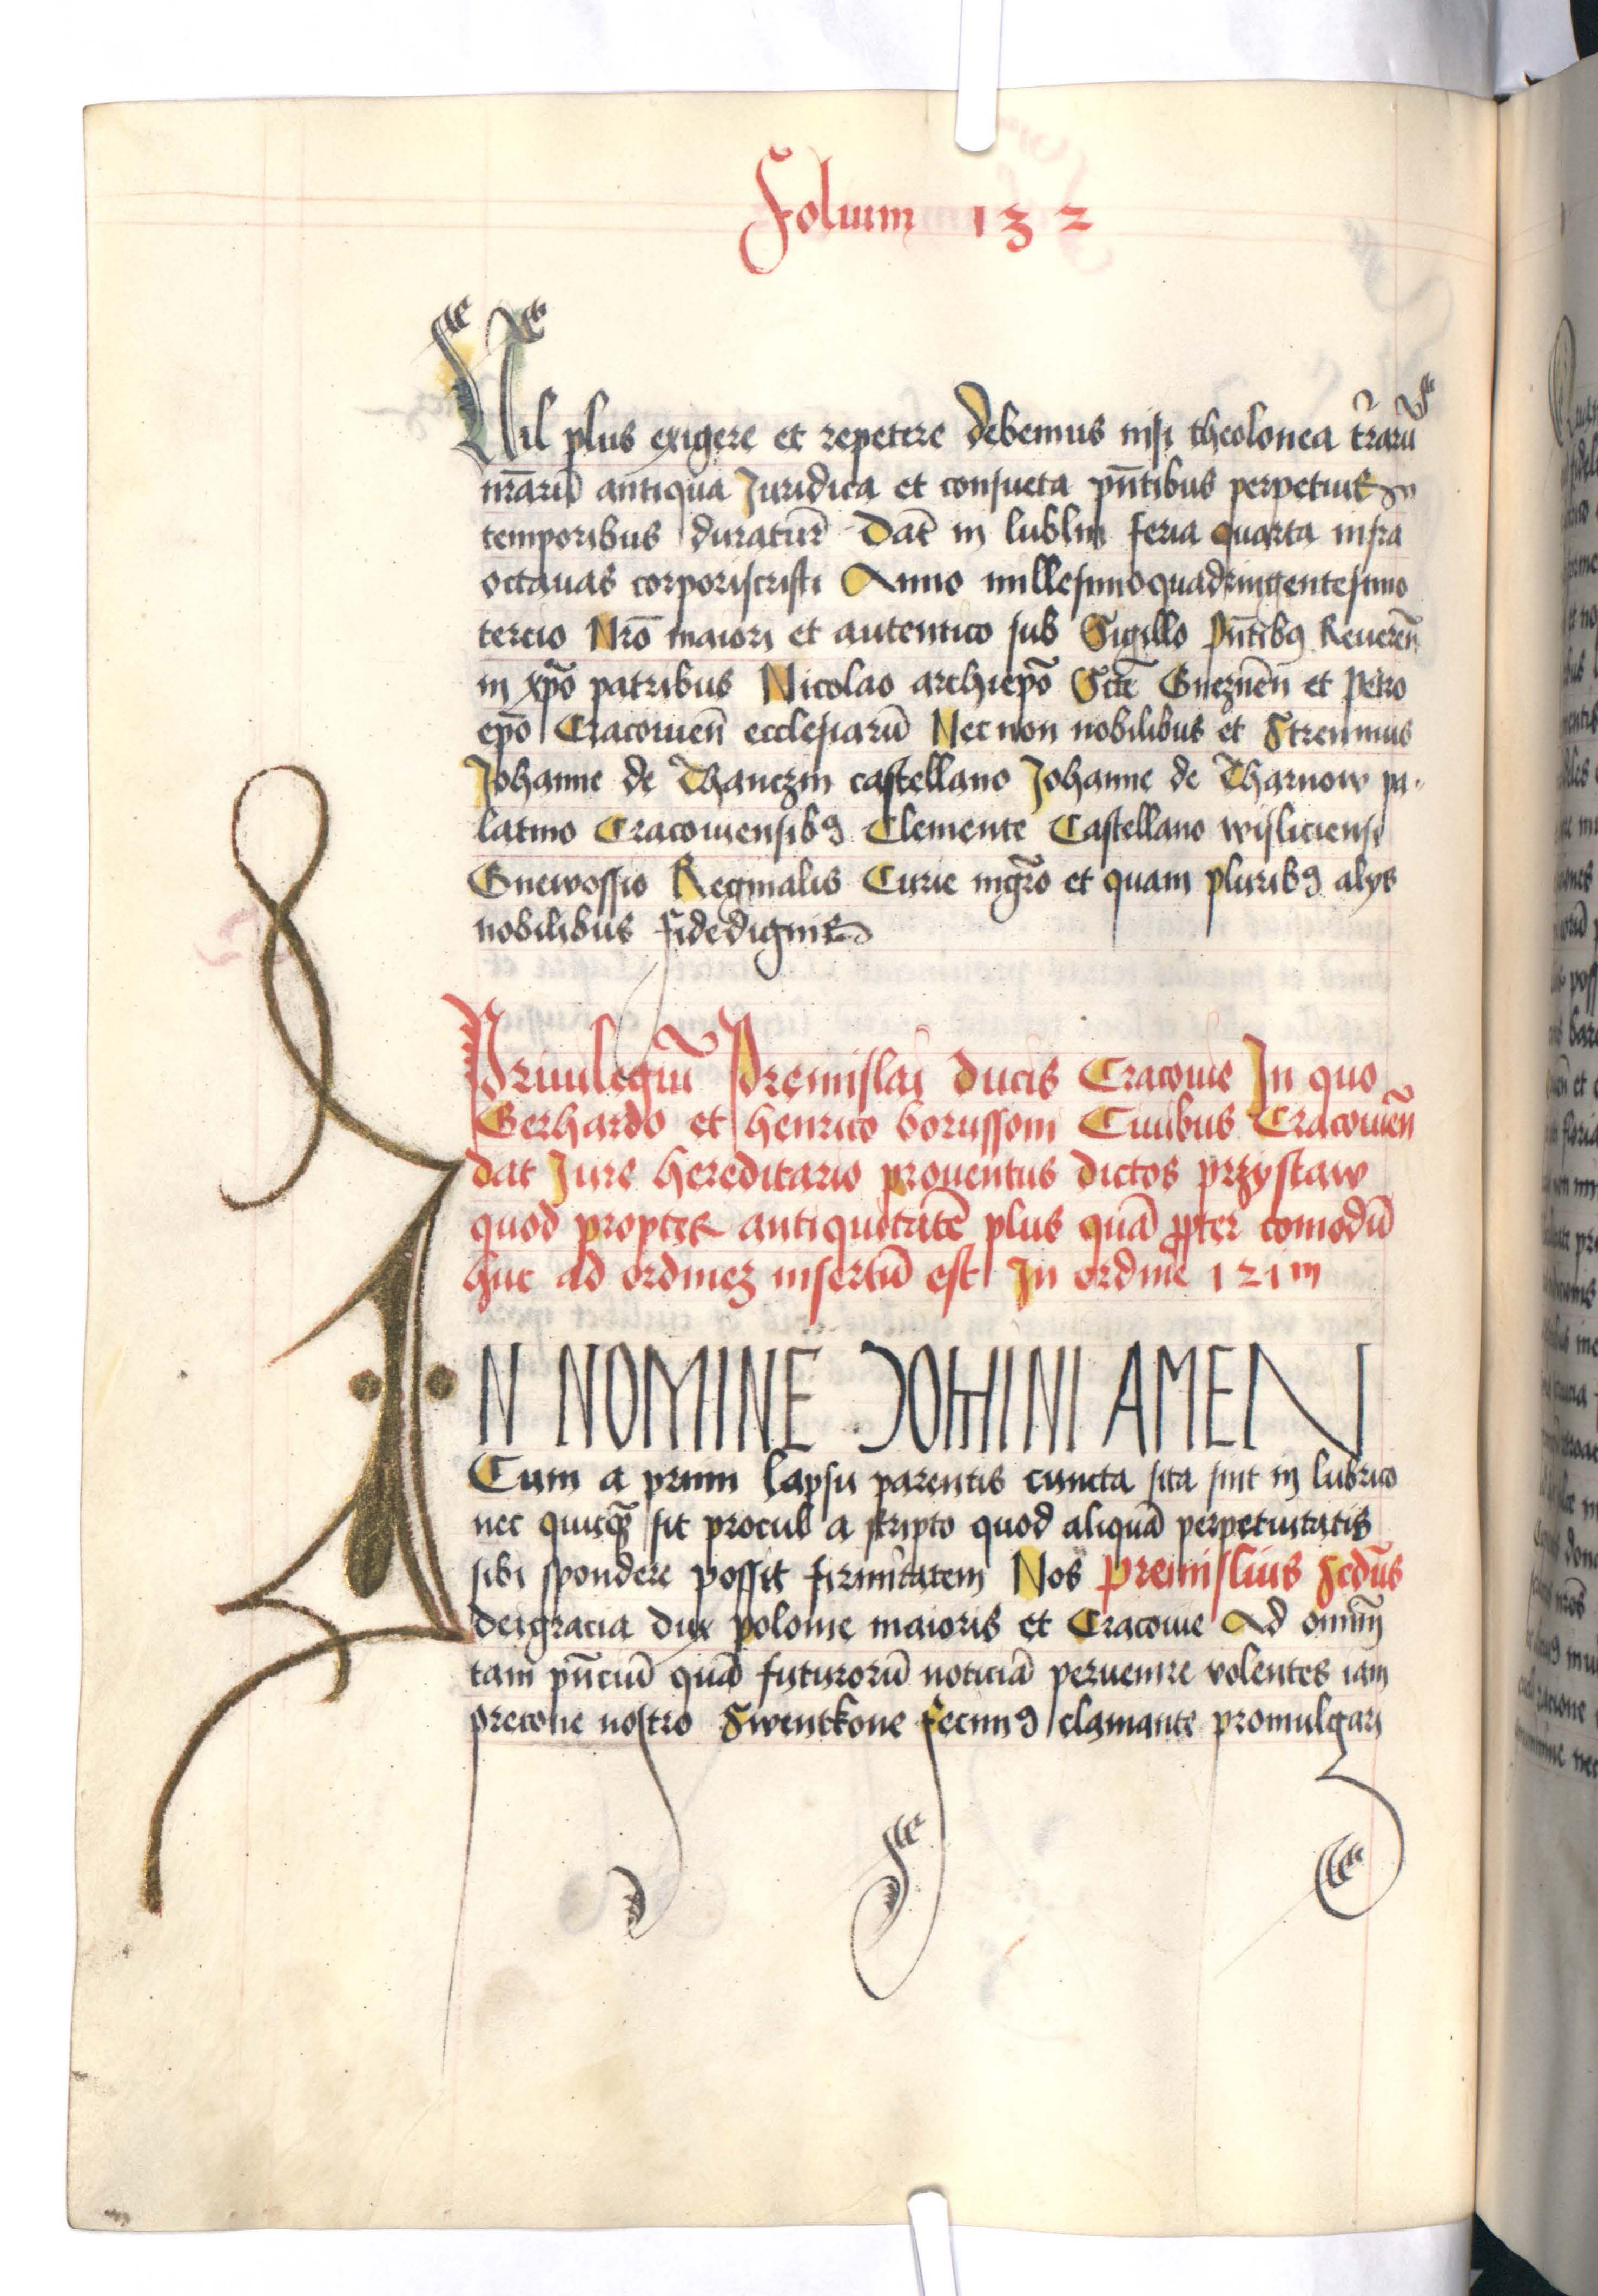 Folium 132
Nil plus exigere et repetere debemus nisi theolonea tr̃arũ
nr̃arũ antiqua Juridica et consueta pñtibus perpetuis
temporibus duratur̃ Dat̃ in lublin feria quarta infra
octauas corporiscristi Anno millesimoquadringentesimo
tercio Nrõ maiori et autentico sub Sigillo pñtibꝯ Reueren̄
in xp̃o patribus Nicolao archiep̃o Scte Gneznen̄ et Petro
ep̃o Cracouien̄ ecclesiarũ Nec non nobilibus et Strennuis
Johanne de Thanczin castellano Johanne de Tharnow pa-
latino Cracouiensibꝯ Clemente Castellano wisliciensi
Gnewossio Reginalis Curie mgr̃o et quam pluribꝯ alys
nobilibus fidedignis
Priuilegiũ Premislai ducis Cracouie In quo
Gerhardo et henrico borussoni Ciuibus Cracouien̄
dat Jure hereditario prouentus dictos przystaw
quod propter antiquitatẽ plus quã ꝓpter comodũ
huc ad ordinez insertũ est In ordine 121m
IN NOMINE DOMINI AMEN
Cum a primi lapsu parentis cuncta sita sint in lubrico
nec quicqꝫ sit procul a scripto quod aliquã perpetuitatis
sibi spondere possit firmitatem Nos premislius scdus
deigracia dux polonie maioris et Cracouie Ad omniũ
tam pñciũ quã futurorũ noticiã peruenire volentes iam
precone nostro Swentkone fecimꝯ clamante promulgari